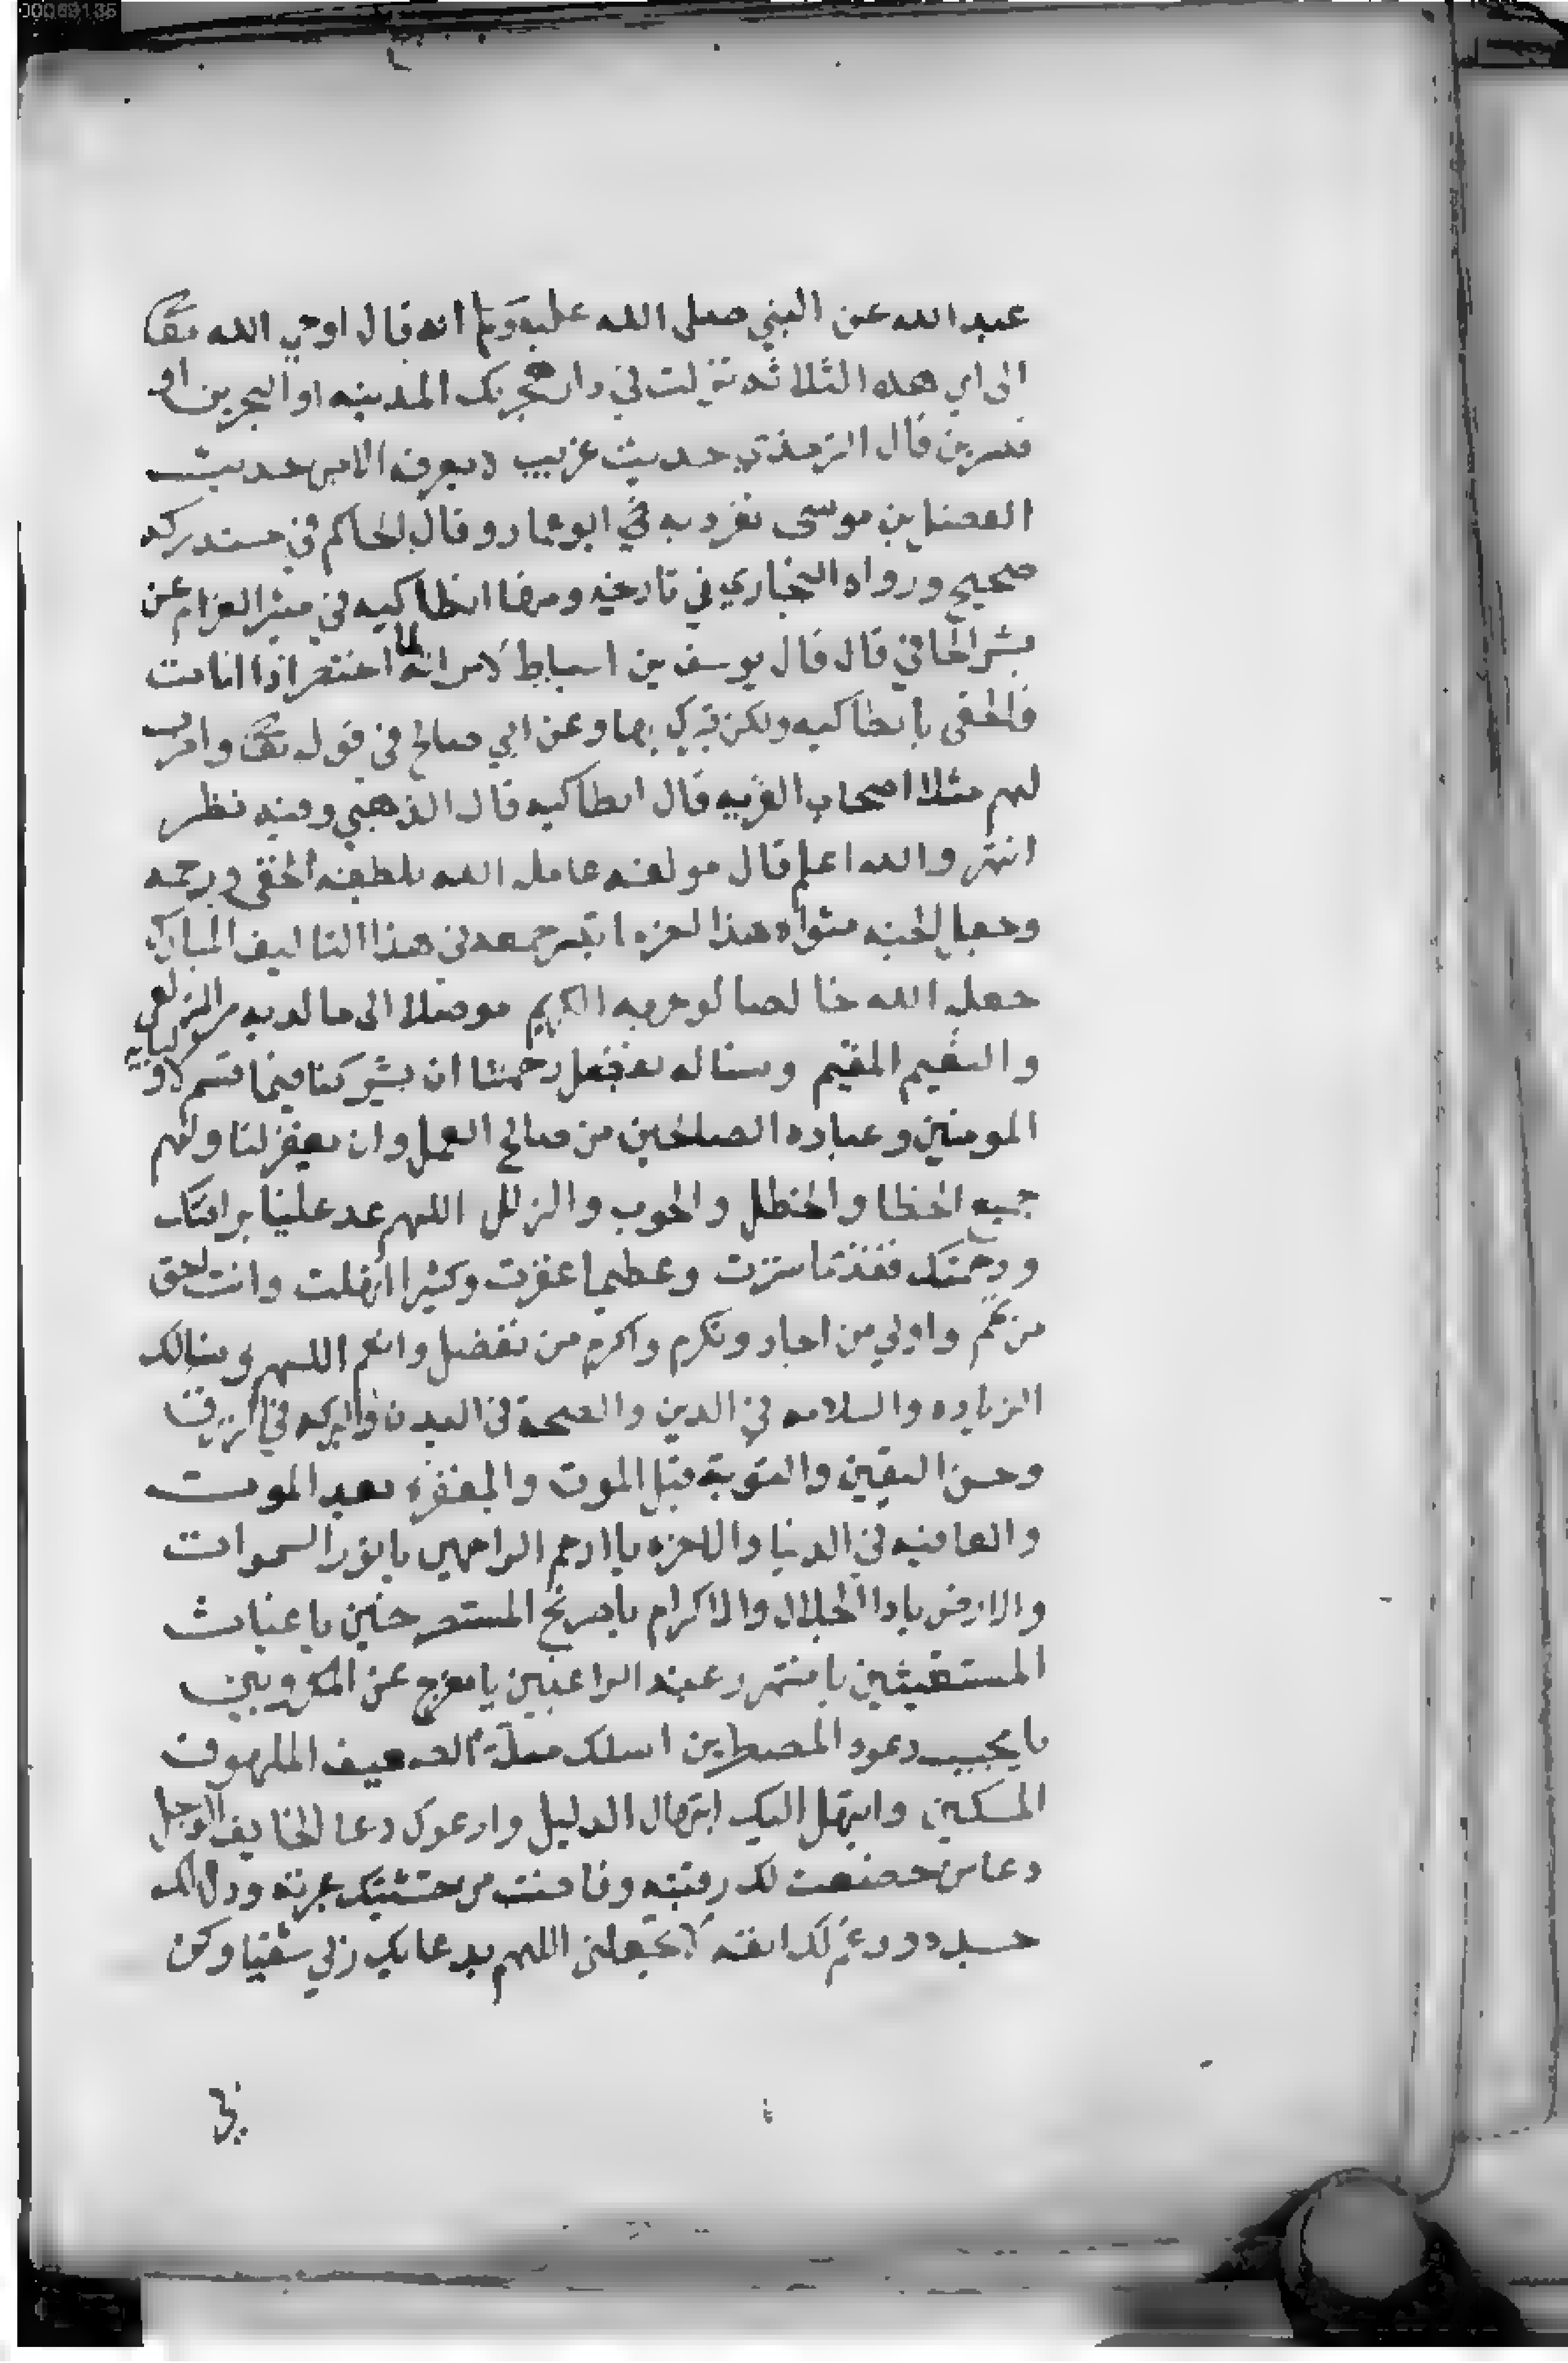 00069135
عبد الله عن النبي صلى الله عليه وسلم انه قال اوحي الله تعالى
الى اي هذه الثلاثه نزلت في دار هجرتك المدينه او البحرين او
قنسرين قال الترمذي حديث غريب لا يعرفه الا من حديث
الفضل بن موسى تفرد به ابو عمار وقال الحاكم في مستدركه
صحيح ورواه البخاري في تاريخه ومنها انطاكيه في مثير الغرام عن
بشر الحافي قال قال يوسف بن اسباط لامراته اذا انا مت
فالحقي بانطاكيه وليكن قبرك بها وعن ابي صالح في قوله تعالى واضرب
لهم مثلا اصحاب القريه قال انطاكيه قال الذهبي وفيه نظر
انتهى والله اعلم قال مولفه عامله الله بلطفه الخفي ورحمه
وجعل الجنه مثواه هذا اخر ما تيسر جمعه في هذا التاليف المبارك
جعله الله خالصا لوجهه الكريم موصلا الى ما لديه من
والنعيم المقيم ونساله بفضل رحمته ان يشركنا فيما قسم لاوليايه
المومنين وعباده الصالحين من صالح العمل وان يغفر لنا ولهم
جميع الخطا والخطل والحوب والزلل اللهم عد علينا برافتك
ورحمتك فقد سترت وعظيما غفرت وكثيرا وانت احق
من واولي من اجاد وتكرم واكرم من تفضل وانعم اللهم ونسالك
الزياده والسلامه في الدين والصحة في البدن والبركه في الرزق
وحسن اليقين والتوبة قبل الموت والمغفره بعد الموت
والعافيه في الدنيا والاخره يا ارحم الراحمين يا نور السموات
والارض يا ذا الجلال والاكرام يا صريخ المستصرخين يا غياث
المستغيثين يا منتهى رغبه الراغبين يا مفرج عن المكروبين
يا مجيب دعوه المضطرين اسلك مسلة الضعيف الملهوف
المسكين وابتهل اليك ابتهال الدليل وادعوك دعا الخايف الوجل
دعا من خضعت لك رقبته وفاضت من خشيتك عبرته وذل لك
جسده ورغم لك انفه لا تجعلني اللهم بدعايك ربي شقيا وكن
بي